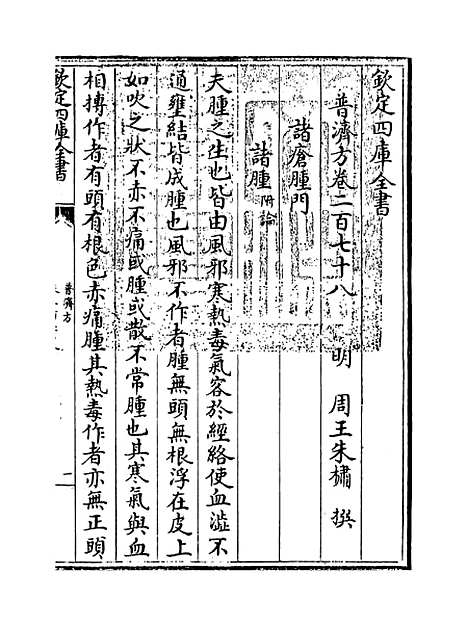 欽定四庫全書
普濟方卷二百七十八
明 周王朱橚 撰
諸瘡腫門
諸腫附論
夫腫之生也皆由風邪寒熱毒氣客於經絡使血澁不
通壅結皆成腫也風邪不作者腫無頭無根浮在皮上
如吹之狀不赤不痛或腫或散不常腫也其寒氣與血
相搏作者有頭有根色赤痛腫其熱毒作者亦無正頭
欽定四庫全書
普濟方
二